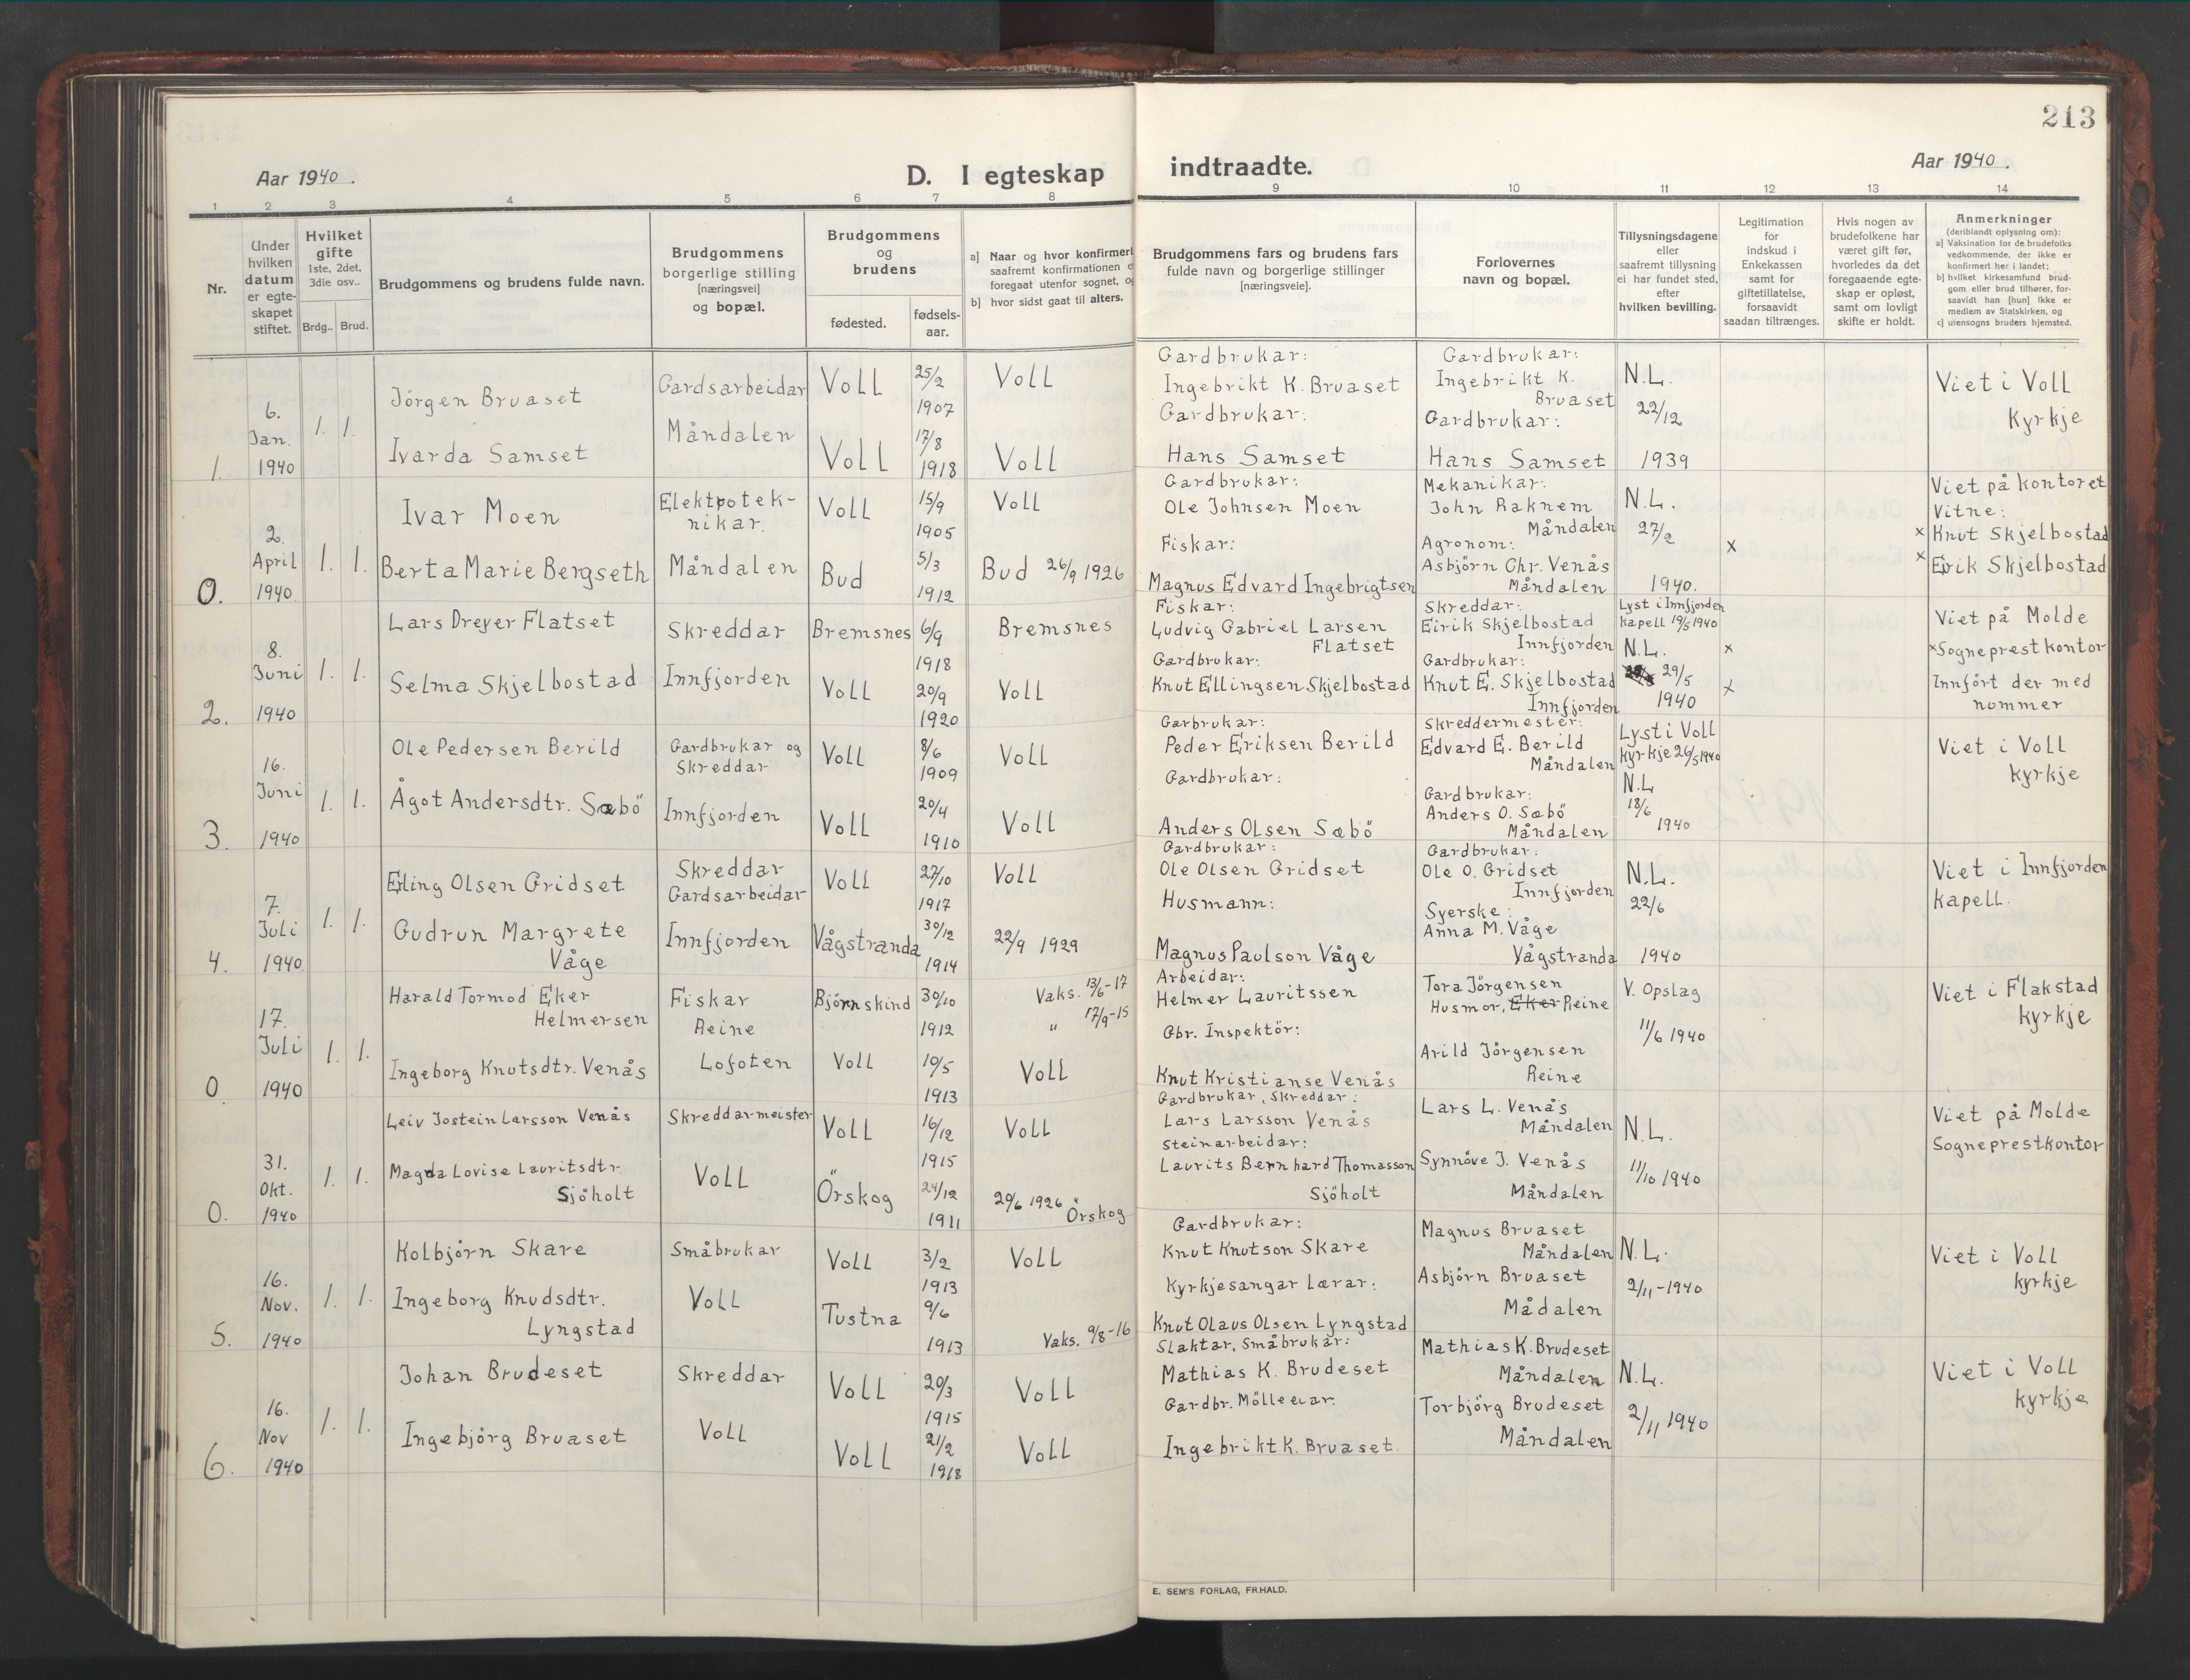 213
Aar 1940.
D. I egteskap
indtraadte.
Aar 1940.
1 2 3 4 5 6 7 8 9 10 11 12 13 14
Nr.
Under hvilken datum er egte-skapet stiftet.
Hvilket gifte
1ste, 2det, 3die osv..
Brdg.. Brud.
Brudgommens og brudens fulde navn.
Brudgommens borgerlige stilling [næringsvei] og bopæl.
Brudgommens og brudens
fødested.
fødsels-aar.
a] Naar og hvor konfirmert
saafremt konfirmationen e
foregaat utenfor sognet, og
b] hvor sidst gaat til alters.
Brudgommens fars og brudens fars
fulde navn og borgerlige stillinger
[næringsveie].
Forlovernes
navn og bopæl.
Tillysningsdagene
eller
saafremt tillysning
ei har fundet sted,
efter
hvilken bevilling.
Legitimation
for
indskud i
Enkekassen
samt for
giftetillatelse,
forsaavidt
saadan tiltrænges.
Hvis nogen av
brudefolkene har
været gift før,
hvorledes da det
foregaaende egte-
skap er opløst,
samt om lovligt
skifte er holdt.
Anmerkninger
(deriblandt oplysning om):
a] Vaksination for de brudefolks
vedkommende, der ikke er
konfirmert her i landet;
b] hvilket kirkesamfund brud-
gom eller brud tilhører, for-
saavidt han [hun] ikke er
medlem av Statskirken, og
c] utensogns bruders hjemsted.
1.
6.
Jan.
1940
1. 1.
Jörgen Bruaset
Ivarda Samset
Gardsarbeidar
Måndalen
Voll
Voll
25/2
1907
17/8
1918
Voll
Voll
Gardbrukar:
Ingebrikt K. Bruaset
Gardbrukar:
Hans Samset
Gardbrukar:
Ingebrikt K.
Bruaset
Gardbrukar:
Hans Samset
N.L.
22/12
1939
Viet i Voll
Kyrkje
0.
2.
April
1940
1. 1.
Ivar Moen
Berta Marie Bergseth
Elektrotek-
nikar.
Måndalen
Voll
Bud
15/9
1905
5/3
1912
Voll
Bud 26/9 1926
Gardbrukar:
Ole Johnsen Moen
Fiskar:
Magnus Edvard Ingebrigtsen
Mekanikar:
John Raknem
Måndalen
Agronom:
Asbjörn Chr. Venås
Måndalen
N.L.
27/2
1940.
x
Viet på kontoret
Vitne:
x Knut Skjelbostad
x Erik Skjelbostad
2.
8.
Juni
1940
1. 1.
Lars Dreyer Flatset
Selma Skjelbostad
Skreddar
Innfjorden
Bremsnes
Voll
6/9
1918
20/9
1920
Bremsnes
Voll
Fiskar:
Ludvig Gabriel Larsen
Flatset
Gardbrukar:
Knut Ellingsen Skjelbostad
Skreddar:
Eirik Skjelbostad
Innfjorden
Gardbrukar:
Knut E. Skjelbostad
Innfjorden
Lyst i Innfjorden
kapell 19/5 1940
N.L.
29/5
1940
x
x
Viet på Molde
x Sogneprestkontor
Innfört der med
nummer
3.
16.
Juni
1940
1. 1.
Ole Pedersen Berild
Ågot Andersdtr. Sæbö
Gardbrukar og
Skreddar
Innfjorden
Voll
Voll
8/6
1909
20/4
1910
Voll
Voll
Garbrukar:
Peder Eriksen Berild
Gardbrukar:
Anders Olsen Sæbö
Skreddermester:
Edvard E. Berild
Måndalen
Gardbrukar:
Anders O. Sæbö
Måndalen
Lyst i Voll
kyrkje 26/5 1940
N.L
18/6
1940
Viet i Voll
kyrkje
4.
7.
Juli
1940
1. 1.
Erling Olsen Gridset
Gudrun Margrete
Våge
Skreddar
Gardsarbeidar
Innfjorden
Voll
Vågstranda
27/10
1917
30/12
1914
Voll
22/9 1929
Gardbrukar:
Ole Olsen Gridset
Husmann:
Magnus Paulson Våge
Gardbrukar:
Ole O. Gridset
Innfjorden
Syerske:
Anna M. Våge
Vågstranda
N.L.
22/6
1940
Viet i Innfjorden
kapell.
0
17.
Juli
1940
1. 1.
Harald Tormod Eker
Helmersen
Ingeborg Knutsdtr. Venås
Fiskar
Reine
Lofoten
Björnskind
Voll
30/10
1912
10/5
1913
Vaks. 13/6-17
" 17/9-15
Voll
Arbeidar:
Helmer Lauritssen
Gbr. Inspektör:
Knut Kristianse Venås
Tora Jörgensen
Husmor, Eker Reine
Arild Jörgensen
Reine
V. Opslag
11/6 1940
Viet i Flakstad
kyrkje
0.
31.
Okt.
1940
1. 1.
Leiv Jostein Larsson Venås
Magda Lovise Lauritsdtr.
Sjöholt
Skreddarmeister
Voll
Voll
Örskog
16/12
1915
24/12
1911
Voll
20/6 1926
Örskog
Gardbrukar, Skreddar:
Lars Larsson Venås
Steinarbeidar:
Laurits Bernhard Thomasson
Sjöholt
Lars L. Venås
Måndalen
Synnöve J. Venås
Måndalen
N.L.
11/10 1940
Viet på Molde
Sogneprestkontor
5.
16.
Nov.
1940
1. 1.
Kolbjörn Skare
Ingeborg Knudsdtr.
Lyngstad
Småbrukar
Voll
Voll
Tustna
3/2
1913
9/6
1913
Voll
Vaks. 9/8-16
Gardbrukar:
Knut Knutson Skare
Kyrkjesangar Lærar:
Knut Olaus Olsen Lyngstad
Magnus Bruaset
Måndalen
Asbjörn Bruaset
Mådalen
N.L.
2/11-1940
Viet i Voll
kyrkje
6.
16.
Nov
1940
1. 1.
Johan Brudeset
Ingebjörg Bruaset
Skreddar
Voll
Voll
Voll
20/3
1915
21/2
1918
Voll
Voll
Slaktar, Småbrukar:
Mathias K. Brudeset
Gardbr.
Ingebrikt K. Bruaset.
Mathias K. Brudeset
Måndalen
Torbjörg Brudeset
Måndalen
N.L.
2/11 1940
Viet i Voll
kyrkje
E. SEM'S FORLAG, FR.HALD.